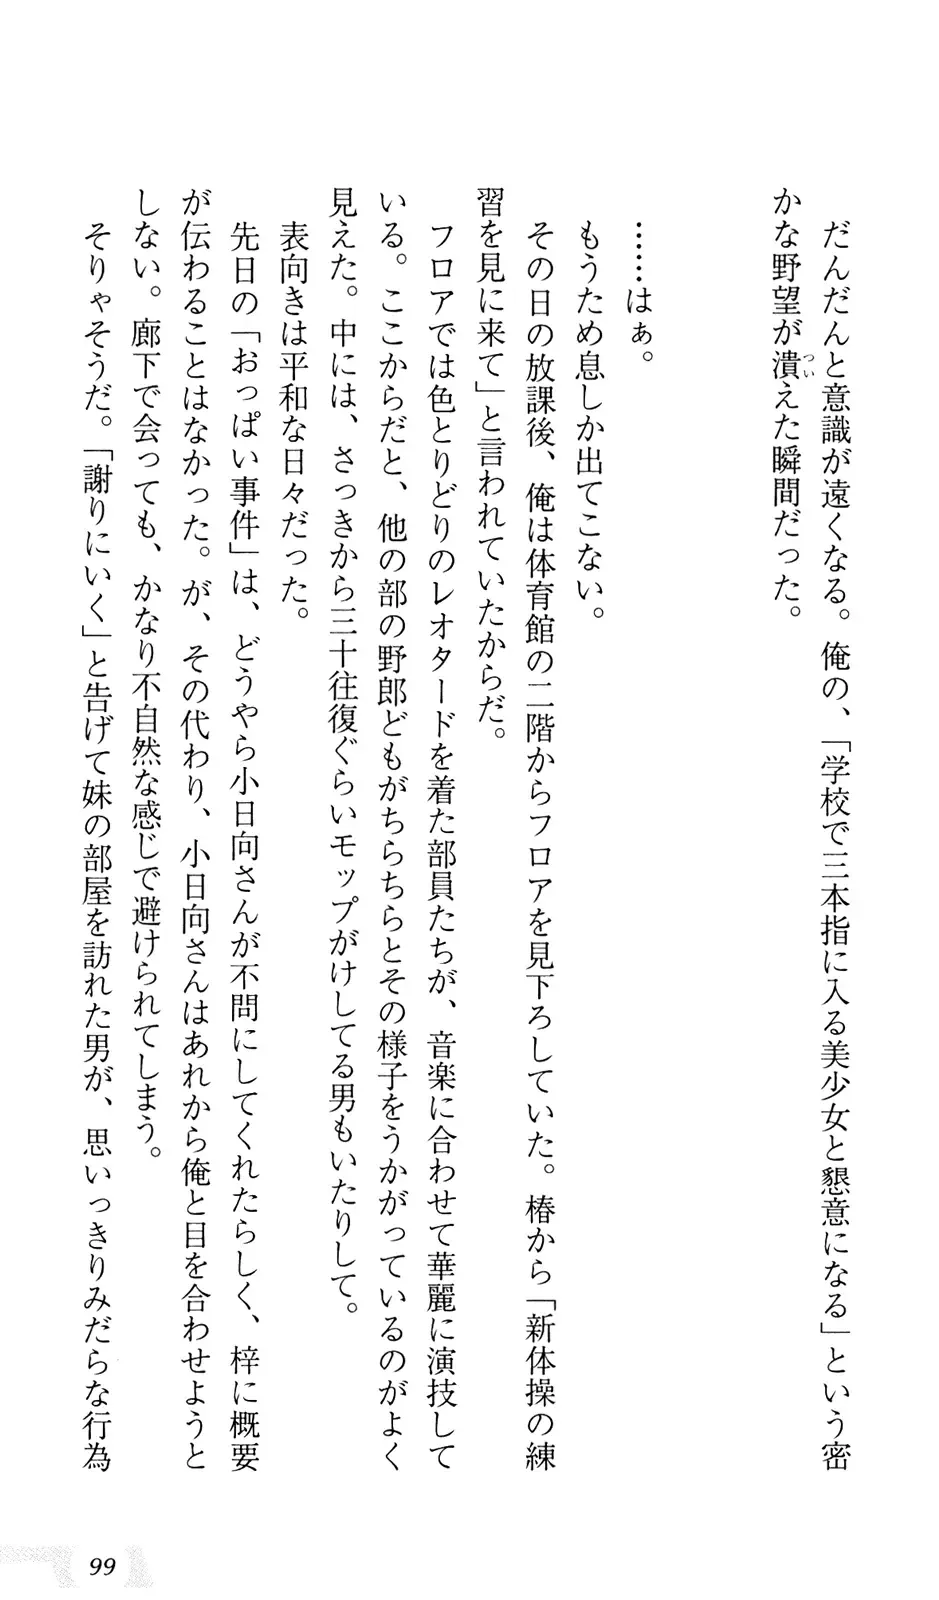 だんだんと意識が遠くなる。俺の、「学校で三本指に入る美少女と懇意になる」という密
かな野望が潰えた瞬間だった。
つい
……はぁ。
もうため息しか出てこない。
その日の放課後、俺は体育館の二階からフロアを見下ろしていた。椿から「新体操の練
習を見に来て」と言われていたからだ。
フロアでは色とりどりのレオタードを着た部員たちが、音楽に合わせて華麗に演技して
いる。ここからだと、他の部の野郎どもがちらちらとその様子をうかがっているのがよく
見えた。中には、さっきから三十往復ぐらいモップがけしてる男もいたりして。
表向きは平和な日々だった。
先日の「おっぱい事件」は、どうやら小日向さんが不問にしてくれたらしく、梓に概要
が伝わることはなかった。が、その代わり、小日向さんはあれから俺と目を合わせようと
しない。廊下で会っても、かなり不自然な感じで避けられてしまう。
そりゃそうだ。「謝りにいく」と告げて妹の部屋を訪れた男が、思いっきりみだらな行為
99